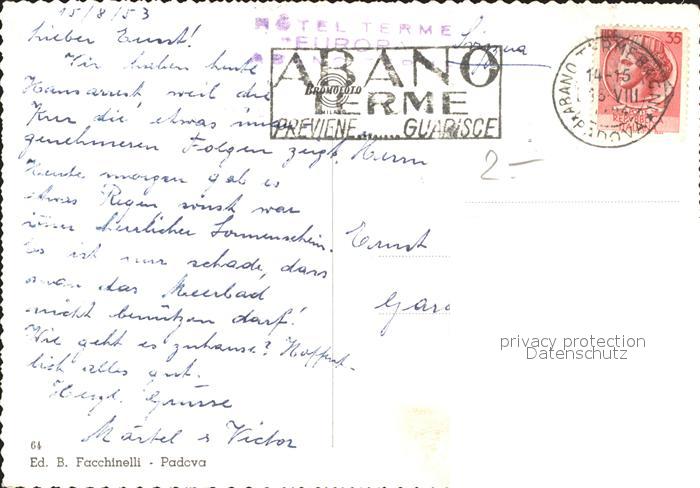 15/8/53
HOTEL TERME
EUROPA
ABANO
Lieber Ernst!
Wir haben heute
Hausarrest weil die
Kur die etwas
genehmeren Folgen zeigt.
Heute morgen gab es
etwas Regen sonst war
immer herrlicher Sonnenschein.
Es ist nur schade, dass
man das Meerbad
nicht benützen darf!
Wie geht es zuhause? Hoffent-
lich alles gut.
Herzl. Grüsse
Märtel & Victor
ABANO
TERME
PREVIENE...... GUARISCE
BROMOFOTO
ABANO TERME
14-15
VIII
PADOVA
35
2.-
Herrn
Ernst
Gard
privacy protection
Datenschutz
64
Ed. B. Facchinelli - Padova